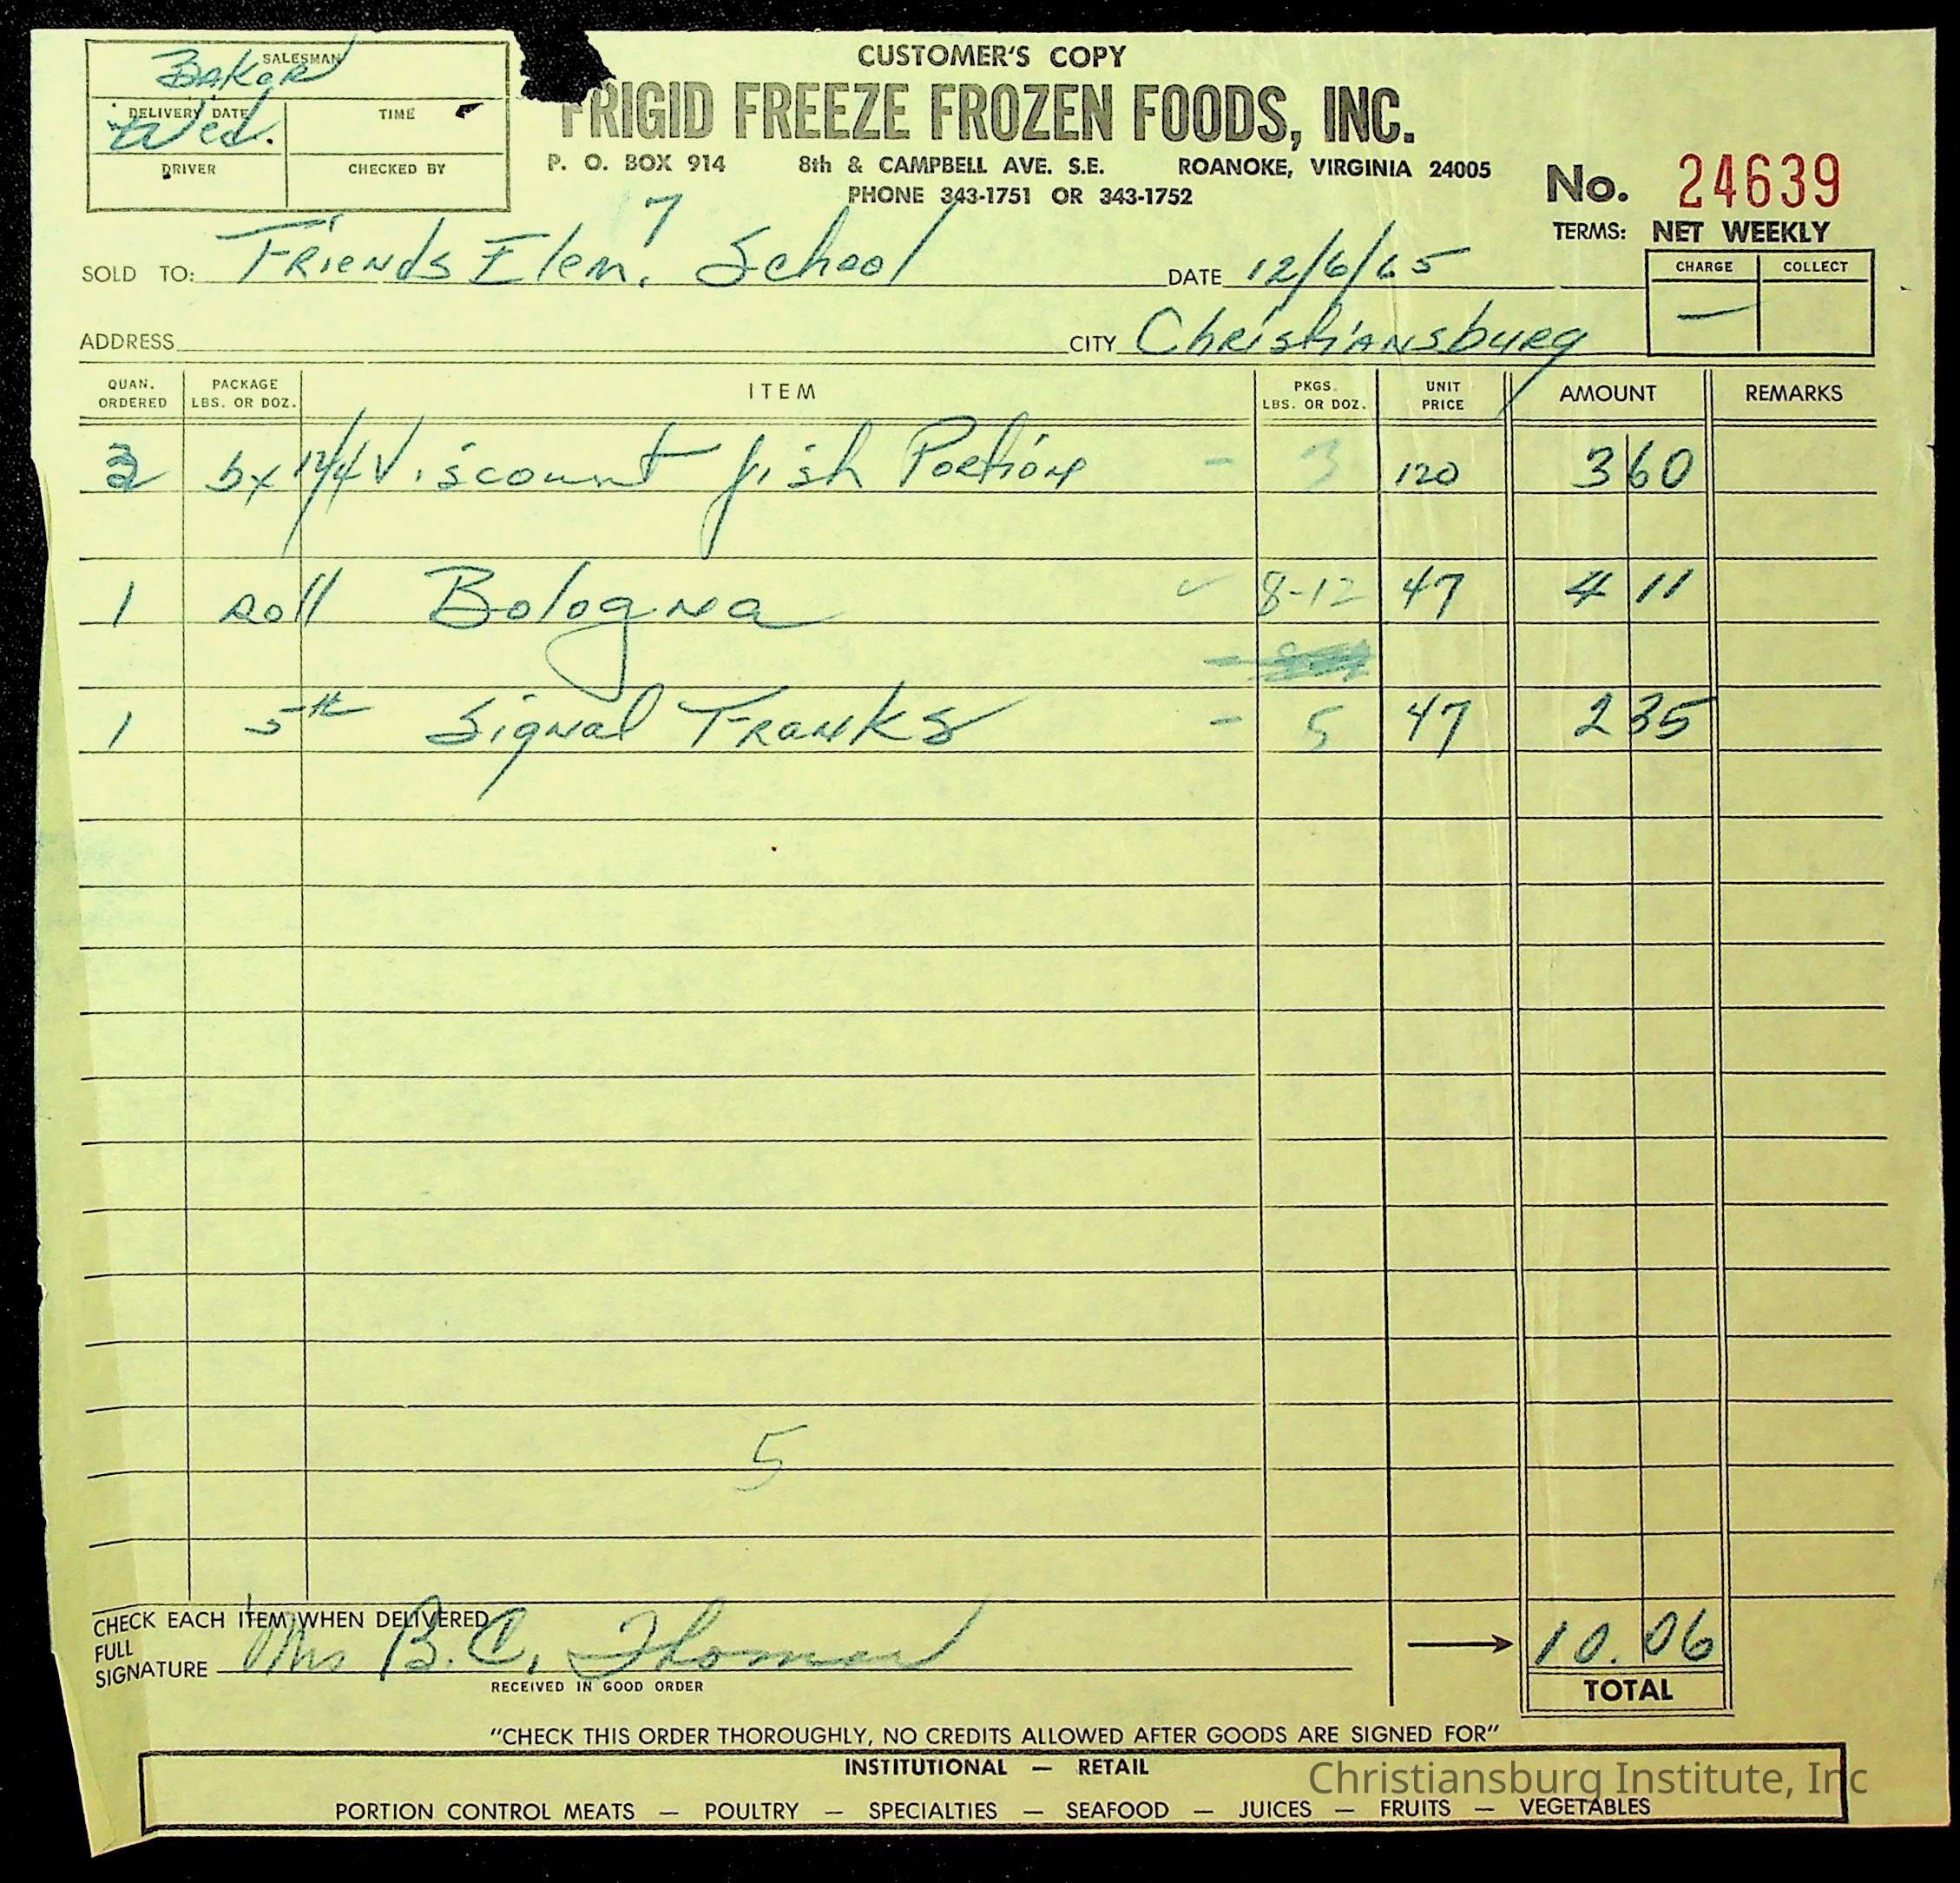 CUSTOMER'S COPY
SALESMAN
Baker
DELIVERY DATE
Wed.
TIME
DRIVER
CHECKED BY
FRIGID FREEZE FROZEN FOODS, INC.
P. O. BOX 914 8th & CAMPBELL AVE. S.E. ROANOKE, VIRGINIA 24005
PHONE 343-1751 OR 343-1752
No. 24639
TERMS: NET WEEKLY
7
SOLD TO: Friends Elem. School DATE 12/6/65
CHARGE COLLECT
—
ADDRESS CITY Christiansburg
QUAN. ORDERED PACKAGE LBS. OR DOZ. ITEM PKGS. LBS. OR DOZ. UNIT PRICE AMOUNT REMARKS
3 bx 12/4 Viscount fish Portions - 3 120 3 60
1 Roll Bologna ✓ 8-12 47 4 11
1 5# Signal Franks - 5 47 2 35
5
CHECK EACH ITEM WHEN DELIVERED
FULL SIGNATURE Mrs B. C. Thomas
RECEIVED IN GOOD ORDER
10.06
TOTAL
"CHECK THIS ORDER THOROUGHLY, NO CREDITS ALLOWED AFTER GOODS ARE SIGNED FOR"
INSTITUTIONAL — RETAIL
PORTION CONTROL MEATS — POULTRY — SPECIALTIES — SEAFOOD — JUICES — FRUITS — VEGETABLES
Christiansburg Institute, Inc